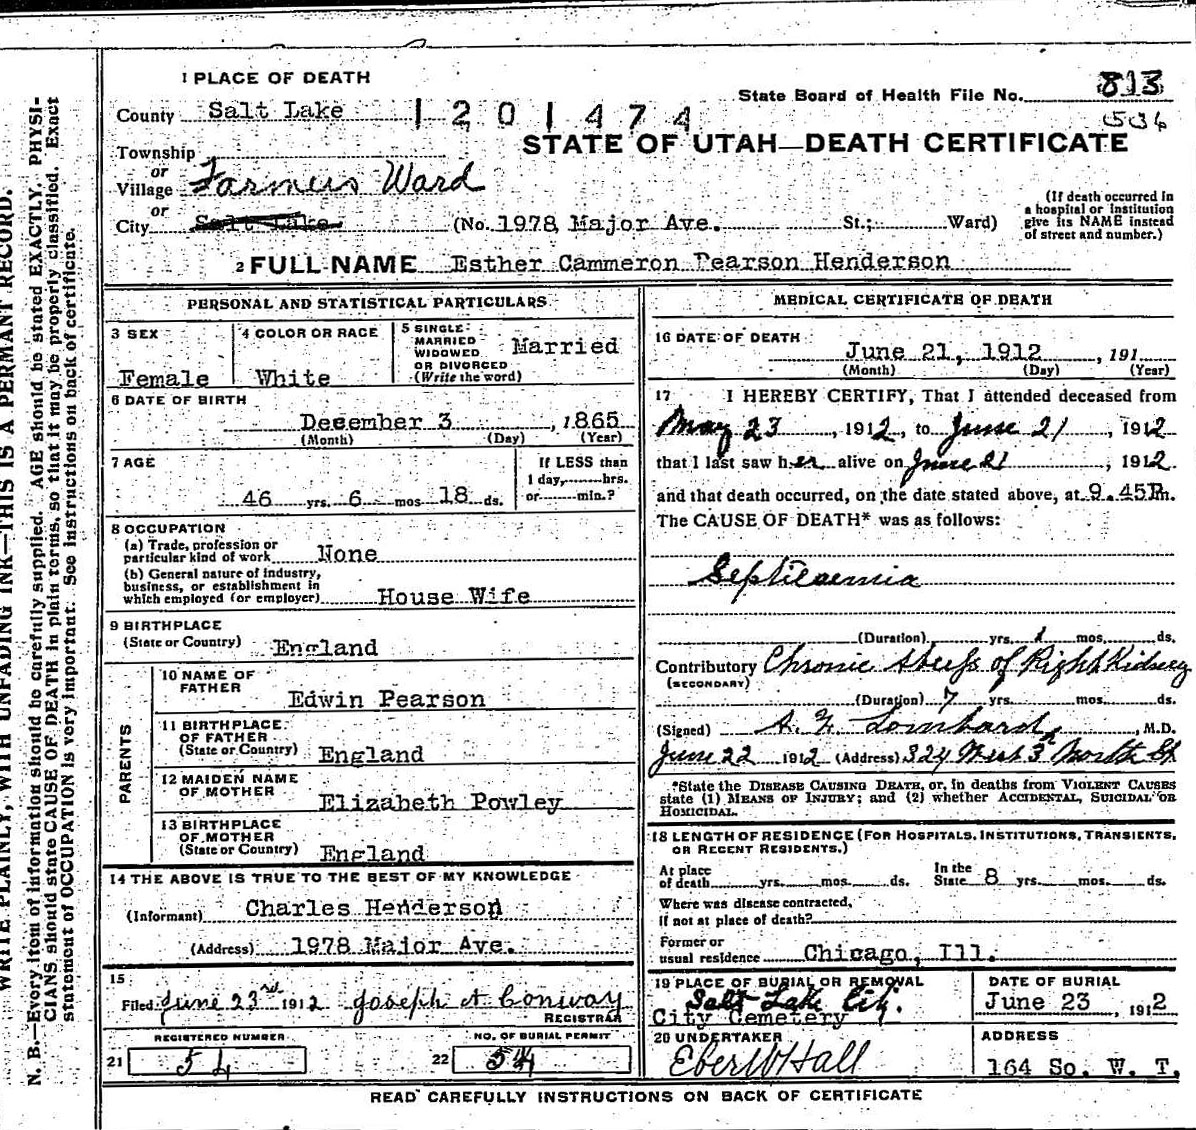 WRITE PLAINLY, WITH UNFADING INK—THIS IS A PERMANT RECORD.
N. B.—Every item of information should be carefully supplied. AGE should be stated EXACTLY. PHYSI-
CIANS should state CAUSE OF DEATH in plain terms, so that it may be properly classified. Exact
statement of OCCUPATION is very important. See instructions on back of certificate.
1 PLACE OF DEATH
County Salt Lake 1201474
State Board of Health File No. 813
STATE OF UTAH—DEATH CERTIFICATE
Township
or
Village Farmers Ward
or
City Salt Lake (No. 1978 Major Ave. St.; Ward)
(If death occurred in
a hospital or institution
give its NAME instead
of street and number.)
2 FULL NAME Esther Cammeron Pearson Henderson
PERSONAL AND STATISTICAL PARTICULARS
3 SEX
Female
4 COLOR OR RACE
White
5 SINGLE
MARRIED
WIDOWED
OR DIVORCED
(Write the word)
Married
6 DATE OF BIRTH
December 3, 1865
(Month) (Day) (Year)
7 AGE
46 yrs. 6 mos 18 ds.
If LESS than
1 day, hrs.
or min.?
8 OCCUPATION
(a) Trade, profession or
particular kind of work None
(b) General nature of industry,
business, or establishment in
which employed (or employer) House Wife
9 BIRTHPLACE
(State or Country) England
PARENTS
10 NAME OF
FATHER Edwin Pearson
11 BIRTHPLACE
OF FATHER
(State or Country) England
12 MAIDEN NAME
OF MOTHER Elizabeth Powley
13 BIRTHPLACE
OF MOTHER
(State or Country) England
14 THE ABOVE IS TRUE TO THE BEST OF MY KNOWLEDGE
(Informant) Charles Henderson
(Address) 1978 Major Ave.
15
Filed June 23rd 1912 Joseph A Conway
REGISTRAR
REGISTERED NUMBER
21 54
NO. OF BURIAL PERMIT
22 54
MEDICAL CERTIFICATE OF DEATH
16 DATE OF DEATH
June 21, 1912, 191
(Month) (Day) (Year)
17 I HEREBY CERTIFY, That I attended deceased from
May 23, 1912, to June 21, 1912
that I last saw her alive on June 21, 1912
and that death occurred, on the date stated above, at 9.45P.m.
The CAUSE OF DEATH* was as follows:
Septicaemia
(Duration) yrs. 1 mos. ds.
Contributory Chronic of Right Kidney
(SECONDARY)
(Duration) 7 yrs. mos. ds.
(Signed) Lombard, M.D.
June 22 1912 (Address) 324 West 3d North St
*State the DISEASE CAUSING DEATH, or, in deaths from VIOLENT CAUSES
state (1) MEANS OF INJURY; and (2) whether ACCIDENTAL, SUICIDAL OR
HOMICIDAL.
18 LENGTH OF RESIDENCE (FOR HOSPITALS, INSTITUTIONS, TRANSIENTS,
OR RECENT RESIDENTS.)
At place
of death yrs. mos. ds.
In the
State 8 yrs. mos. ds.
Where was disease contracted,
if not at place of death?
Former or
usual residence Chicago, Ill.
19 PLACE OF BURIAL OR REMOVAL
Salt Lake City.
City Cemetery
DATE OF BURIAL
June 23, 1912
20 UNDERTAKER
Eber W Hall
ADDRESS
164 So. W. T.
READ CAREFULLY INSTRUCTIONS ON BACK OF CERTIFICATE